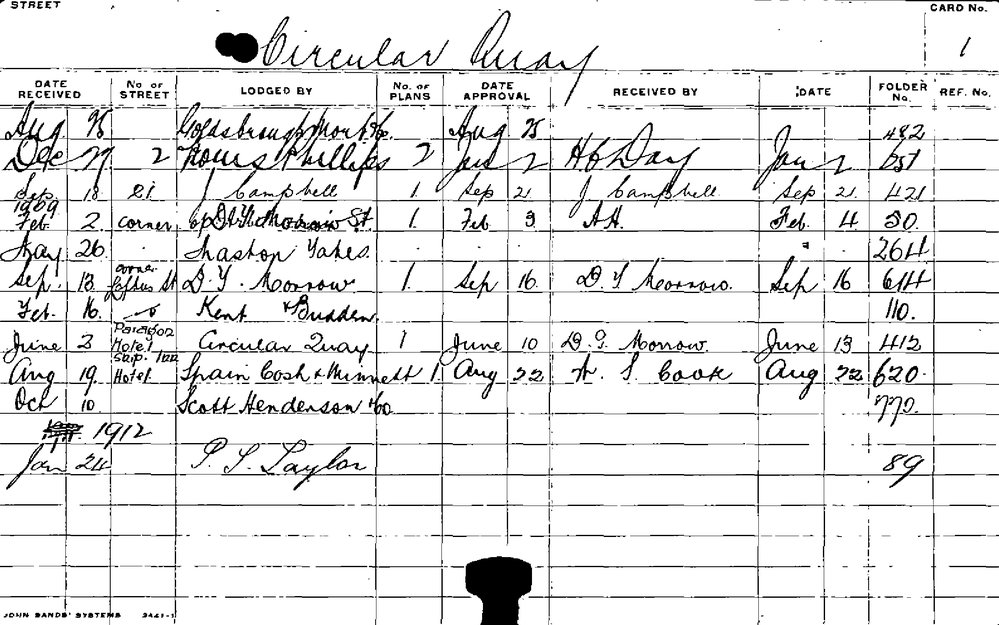 STREET CARD No.
Circular Quay 1
DATE RECEIVED No of STREET LODGED BY No. of PLANS DATE APPROVAL RECEIVED BY DATE FOLDER No. REF. No.
Aug 25 Goldsbrough Mort &Co. Aug 25 482
Dec 27 2 Phillips 2 2 Day Jan 2
Sep 18 21 J Campbell 1. Sep 21 J Campbell Sep 21 421
1909
Feb 2. corner 1. Feb 3 A.H. Feb. 4 30.
May 26. 264
Sep. 13. corner Loftus St D. Y. Morrow 1. Sep 16 D. Y Morrow. Sep 16 614
Feb. 16. Kent & Budden. 110.
June 3 Paragon Hotel Circular Quay 1 June 10 D. Y. Morrow. June 13 412
Aug 19. Hotel. Spain Cosh & Minnett 1. Aug 22 S. Cook Aug 22 620.
Oct 10. Scott Henderson &Co 770.
1912
Jan 24 P. S. Taylor 89
JOHN SANDS' SYSTEMS